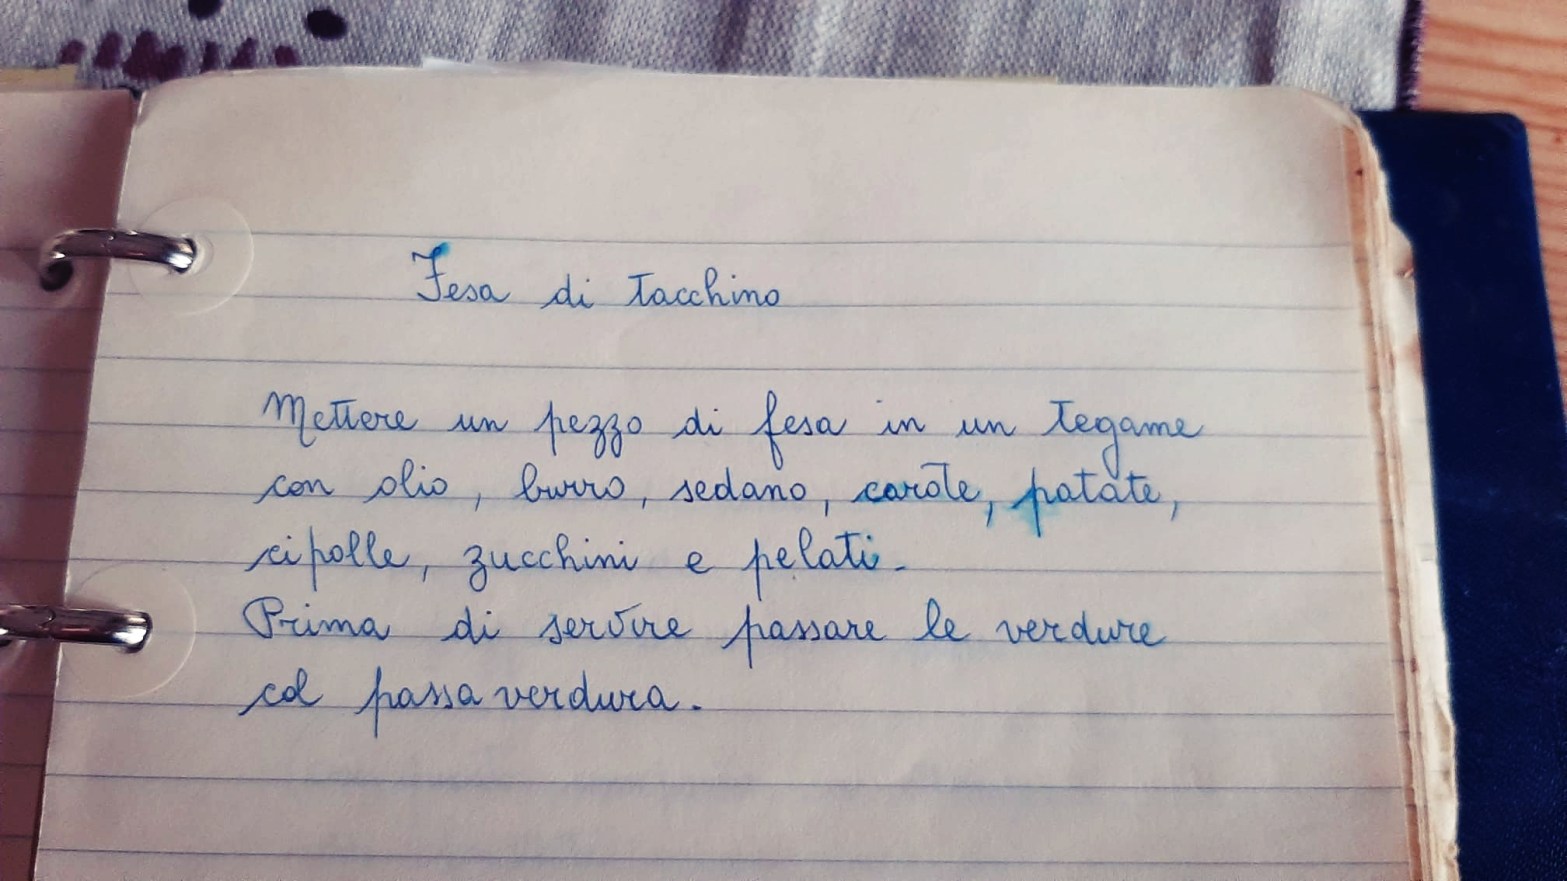 Fesa di tacchino
Mettere un pezzo di fesa in un tegame
con olio, burro, sedano, carote, patate,
cipolle, zucchini e pelati.
Prima di servire passare le verdure
col passa verdura.